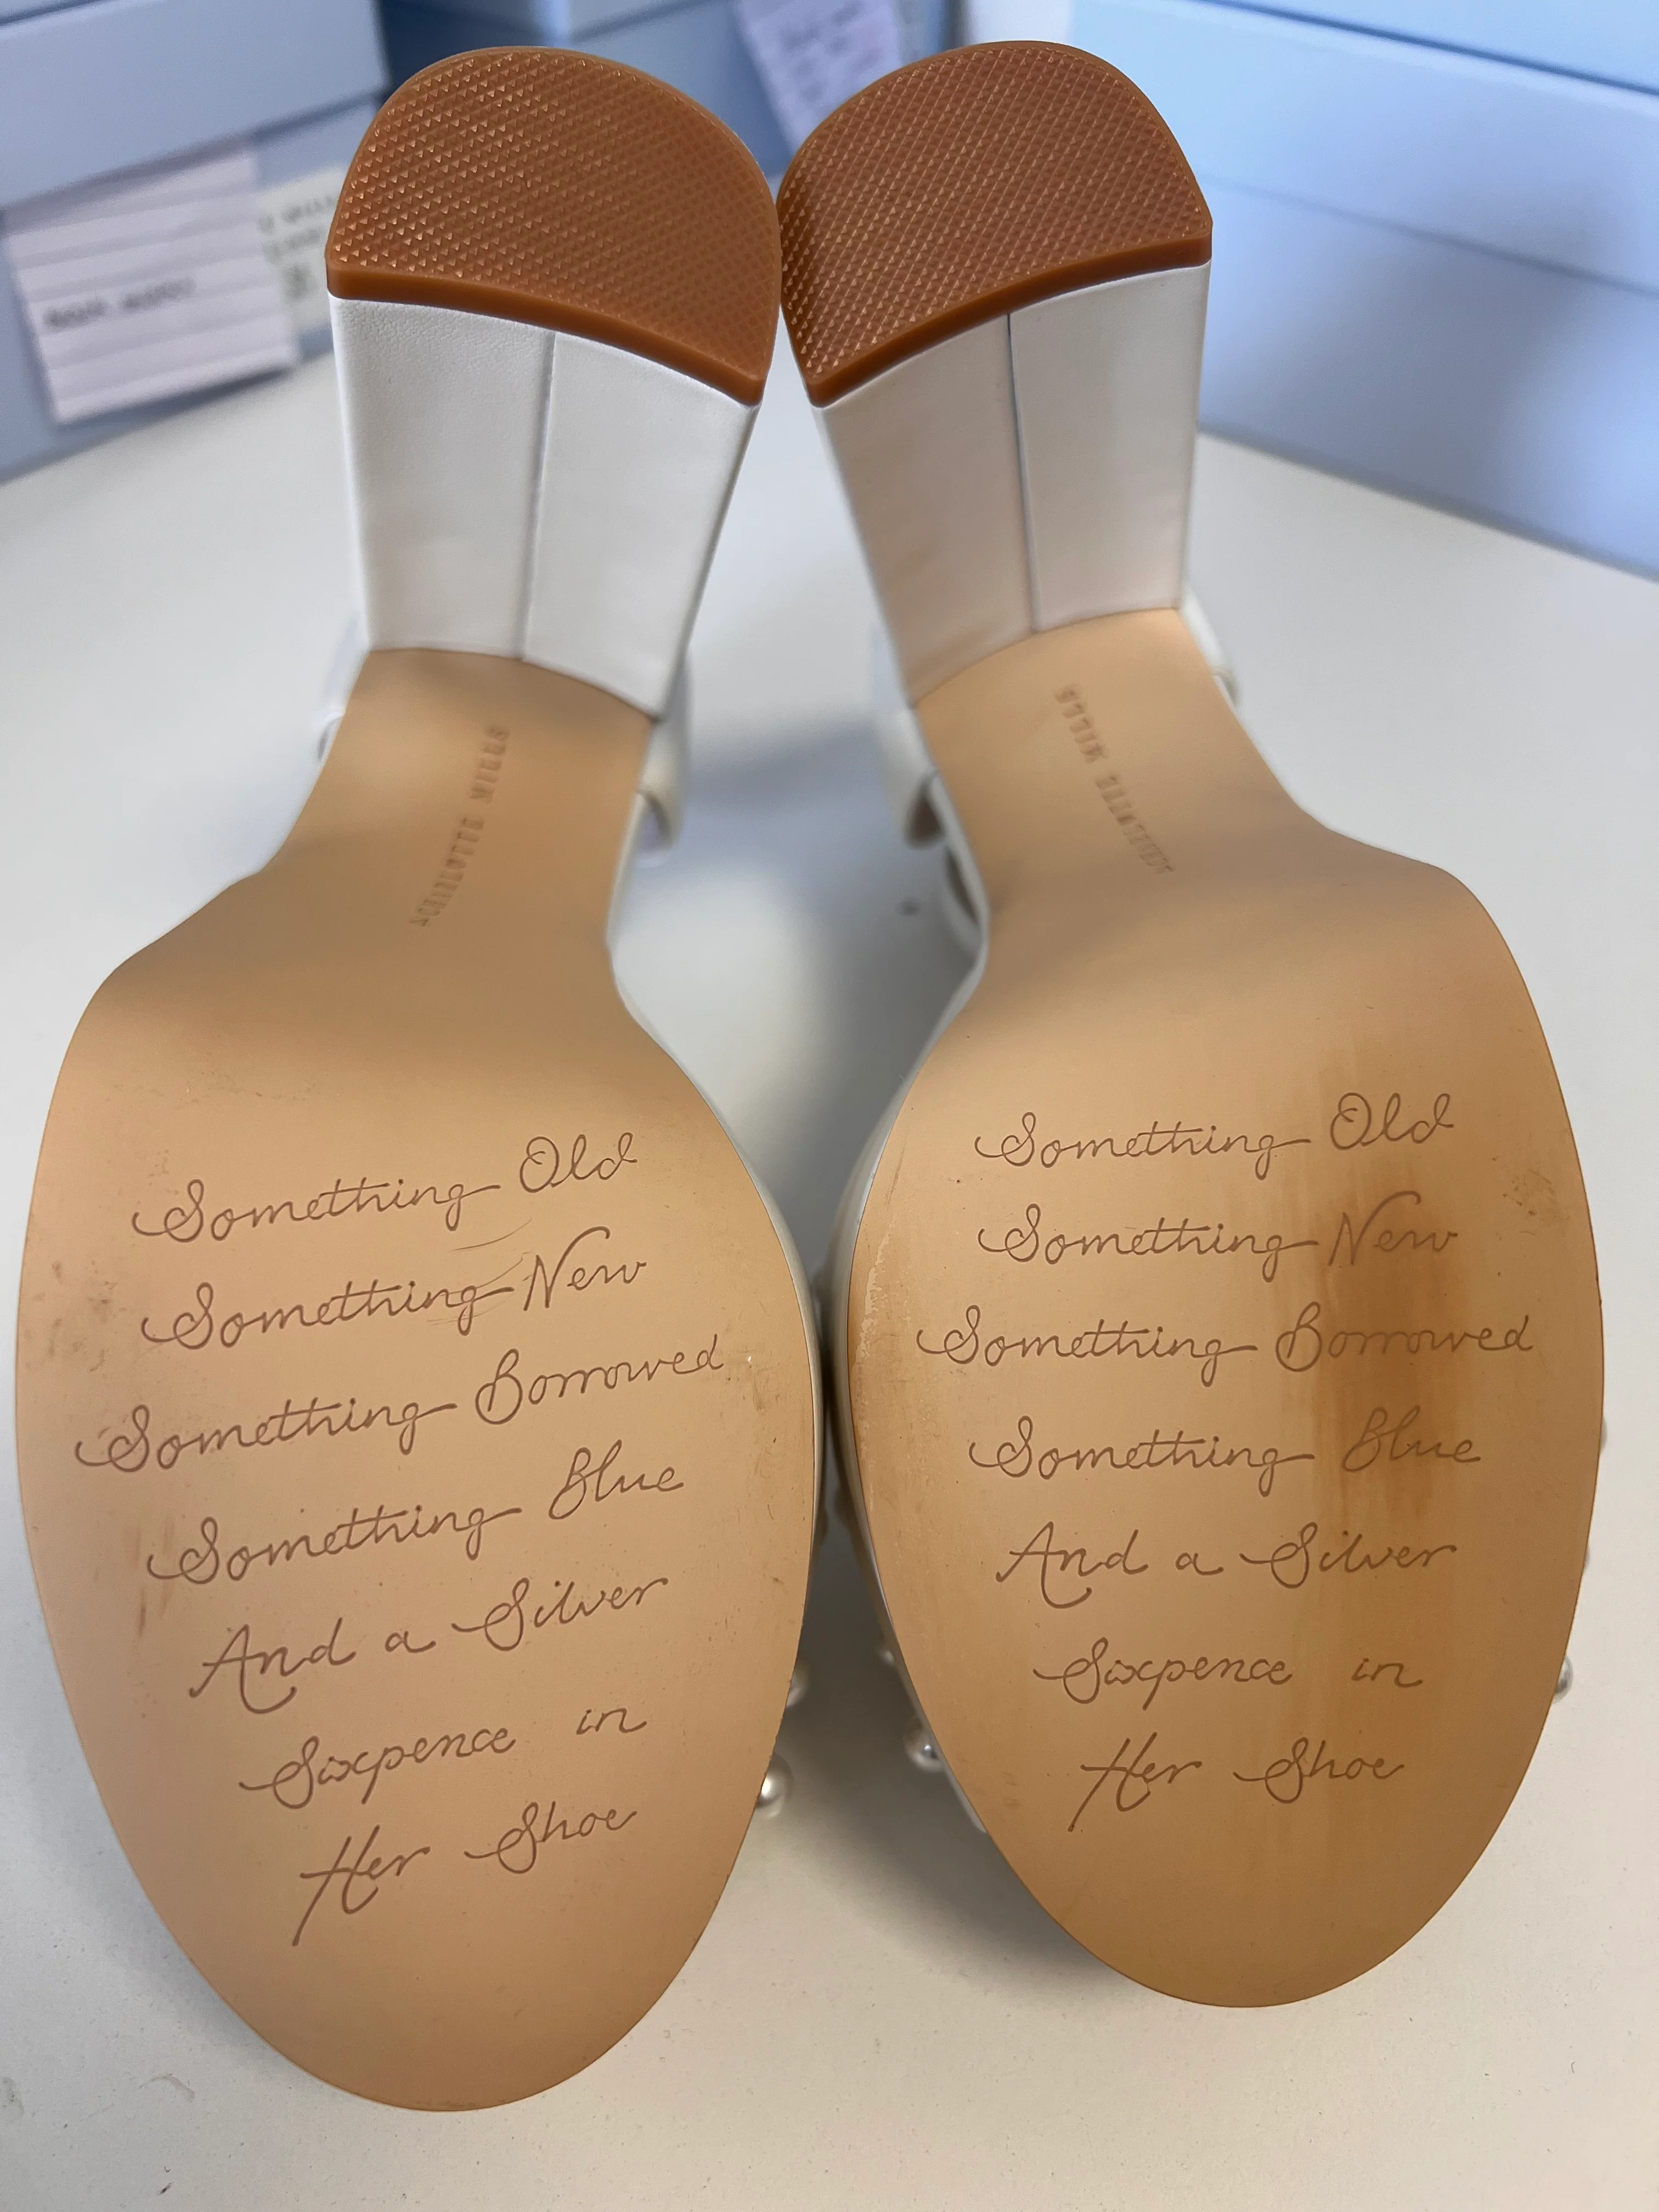 CHARLOTTE MILLS
CHARLOTTE MILLS
Something Old
Something New
Something Borrowed
Something Blue
And a Silver
Sixpence in
Her Shoe
Something Old
Something New
Something Borrowed
Something Blue
And a Silver
Sixpence in
Her Shoe